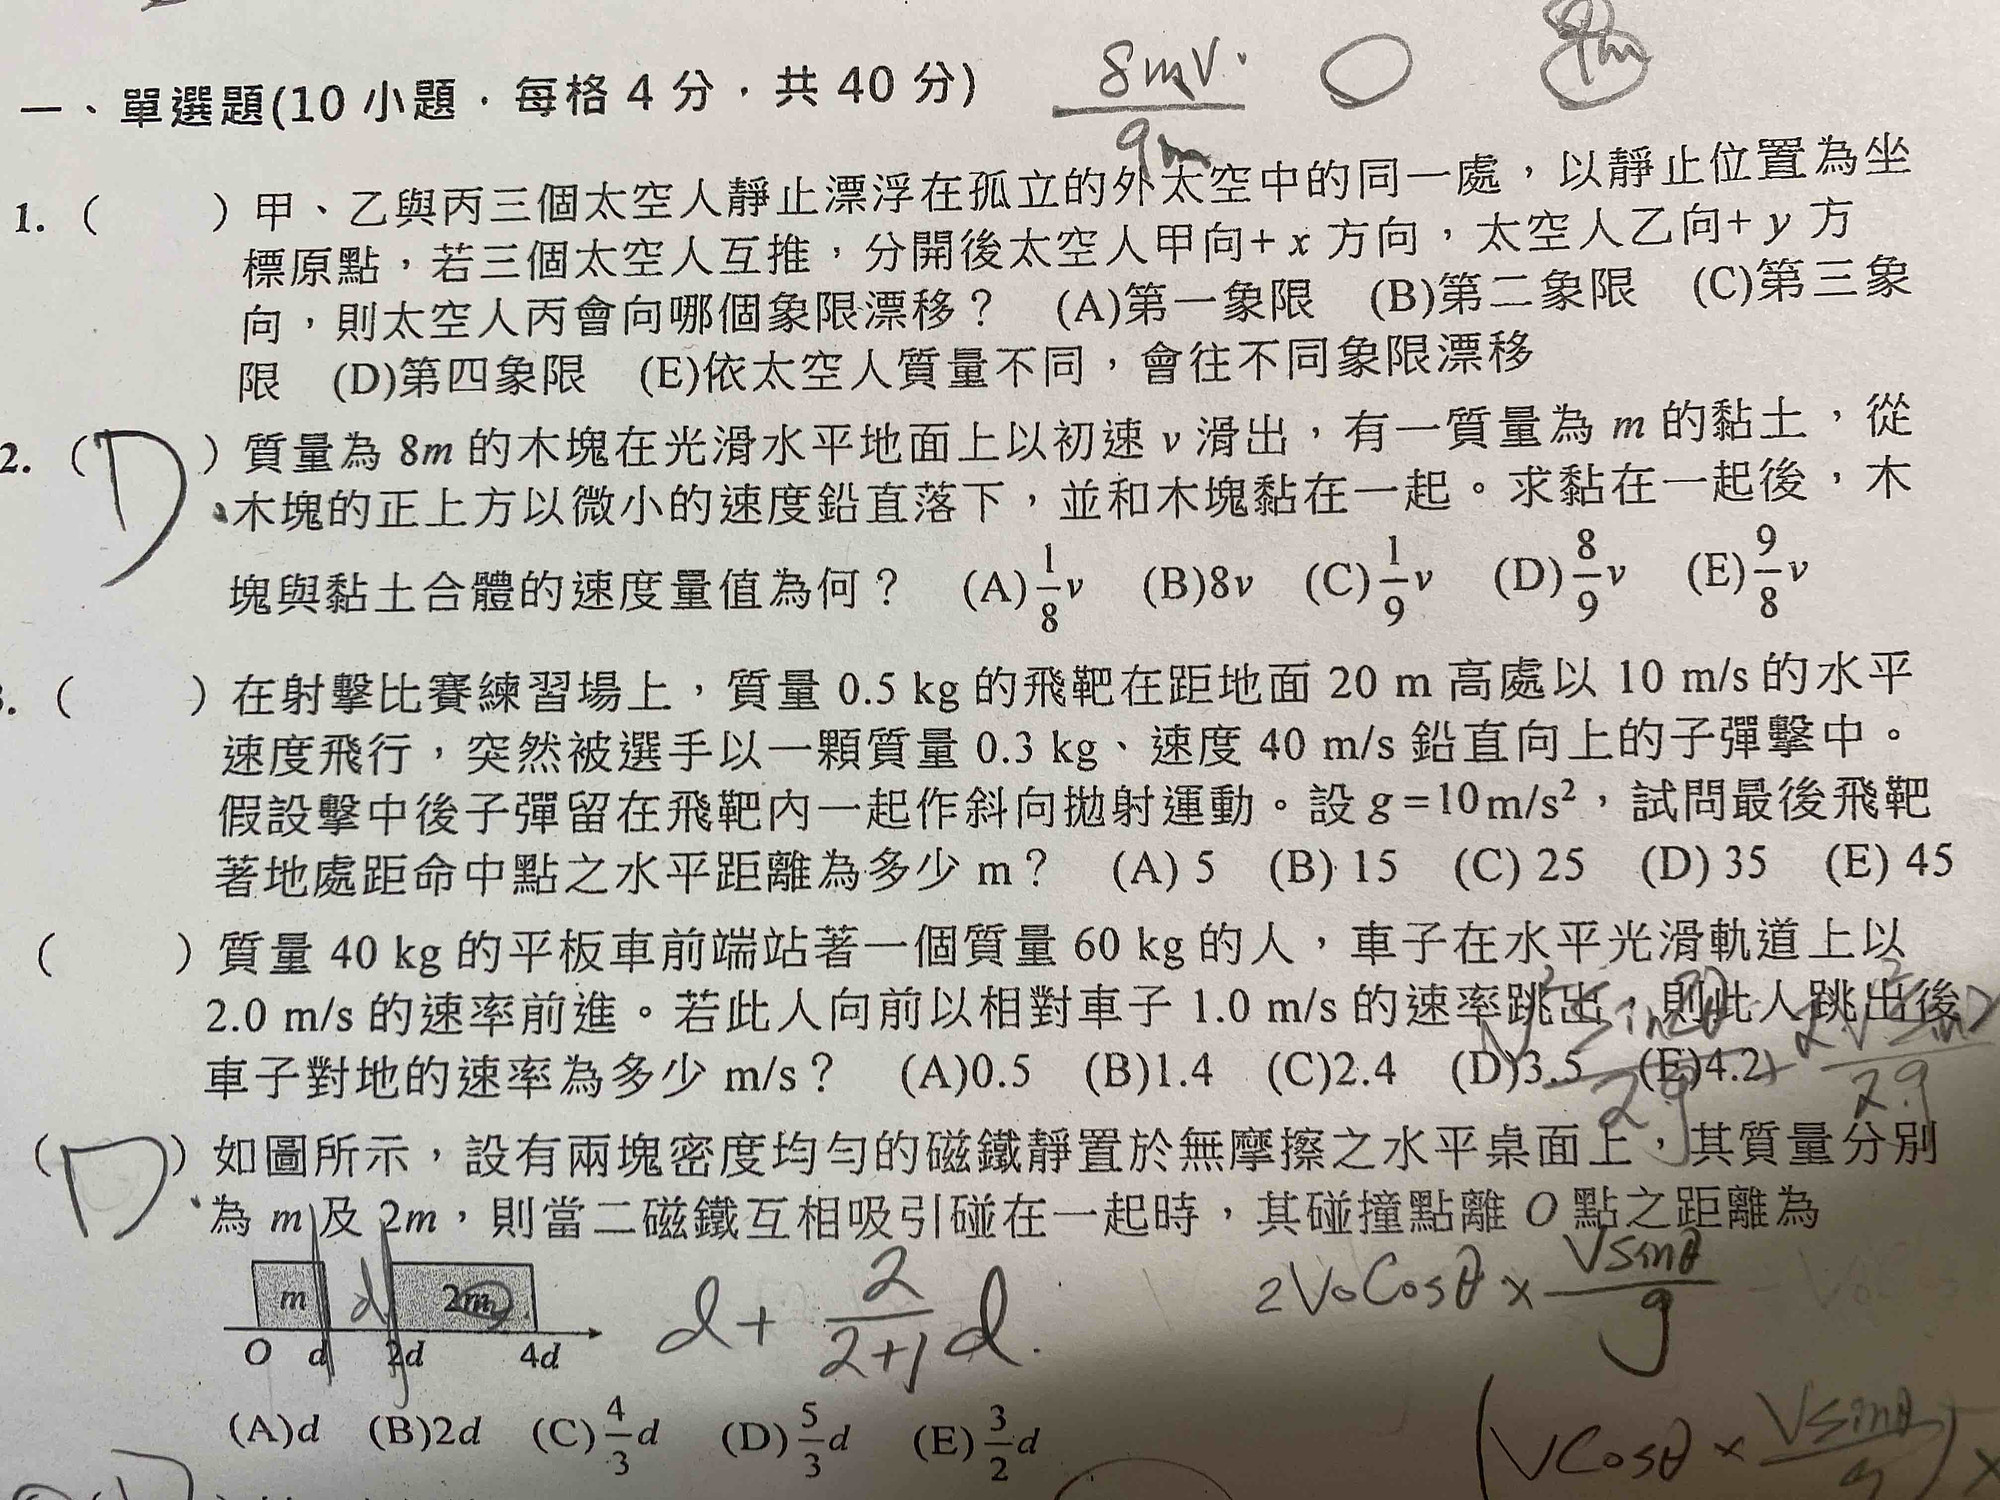 8mv
9m
9m
一、單選題(10 小題，每格 4 分，共 40 分)
1. (　　) 甲、乙與丙三個太空人靜止漂浮在孤立的外太空中的同一處，以靜止位置為坐
標原點，若三個太空人互推，分開後太空人甲向+ x 方向，太空人乙向+ y 方
向，則太空人丙會向哪個象限漂移？ (A)第一象限 (B)第二象限 (C)第三象
限 (D)第四象限 (E)依太空人質量不同，會往不同象限漂移
2. ( D ) 質量為 8m 的木塊在光滑水平地面上以初速 v 滑出，有一質量為 m 的黏土，從
木塊的正上方以微小的速度鉛直落下，並和木塊黏在一起。求黏在一起後，木
塊與黏土合體的速度量值為何？ (A)1/8 v (B)8v (C)1/9 v (D)8/9 v (E)9/8 v
. (　　) 在射擊比賽練習場上，質量 0.5 kg 的飛靶在距地面 20 m 高處以 10 m/s 的水平
速度飛行，突然被選手以一顆質量 0.3 kg、速度 40 m/s 鉛直向上的子彈擊中。
假設擊中後子彈留在飛靶內一起作斜向拋射運動。設 g =10 m/s²，試問最後飛靶
著地處距命中點之水平距離為多少 m？ (A) 5 (B) 15 (C) 25 (D) 35 (E) 45
(　　) 質量 40 kg 的平板車前端站著一個質量 60 kg 的人，車子在水平光滑軌道上以
2.0 m/s 的速率前進。若此人向前以相對車子 1.0 m/s 的速率跳出，則此人跳出後
車子對地的速率為多少 m/s？ (A)0.5 (B)1.4 (C)2.4 (D)3.5 (E)4.2
2g
2g
( D ) 如圖所示，設有兩塊密度均勻的磁鐵靜置於無摩擦之水平桌面上，其質量分別
為 m 及 2m，則當二磁鐵互相吸引碰在一起時，其碰撞點離 O 點之距離為
m d 2m
O d 2d 4d
d + 2/(2+1) d.
2V₀Cosθ × Vsinθ/g
(A)d (B)2d (C)4/3 d (D)5/3 d (E)3/2 d
(VCosθ × Vsinθ/g) ×